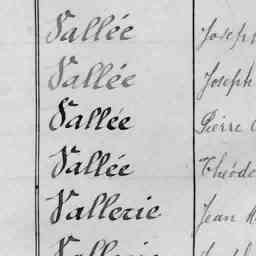 Vallée Joseph
Vallée Joseph
Vallée Pierre
Vallée
Vallerie Jean